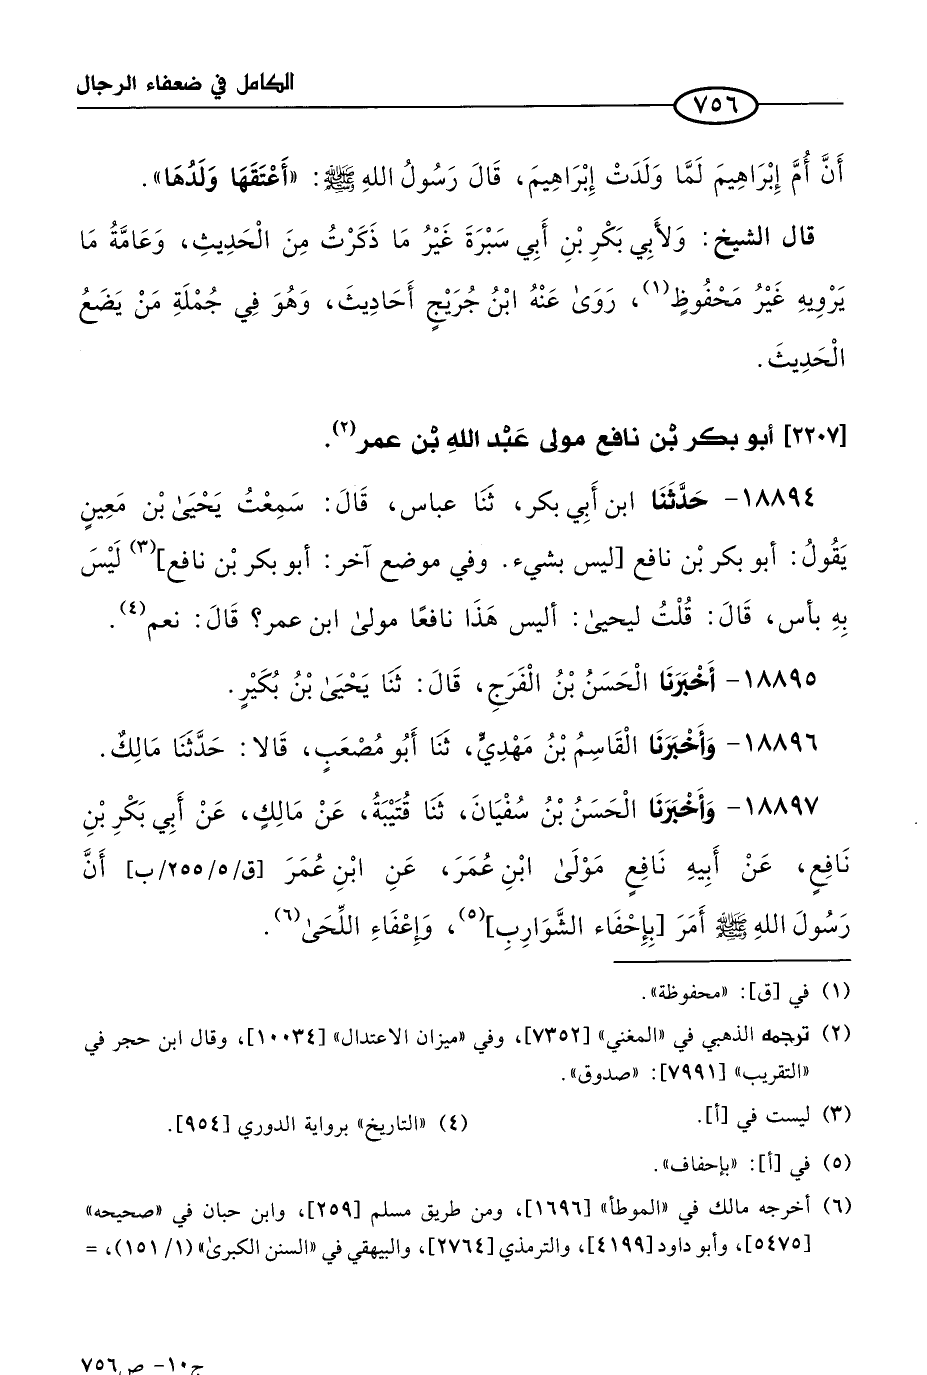 الكامل في ضعفاء الرجال
٧٥٦
أَنَّ أُمَّ إِبْرَاهِيمَ لَمَّا وَلَدَتْ إِبْرَاهِيمَ، قَالَ رَسُولُ اللهِ ﷺ: «أَعْتَقَهَا وَلَدُهَا».
قال الشيخ: وَلأَبِي بَكْرِ بْنِ أَبِي سَبْرَةَ غَيْرُ مَا ذَكَرْتُ مِنَ الْحَدِيثِ، وَعَامَّةُ مَا
يَرْوِيهِ غَيْرُ مَحْفُوظٍ(١)، رَوَىٰ عَنْهُ ابْنُ جُرَيْجٍ أَحَادِيثَ، وَهُوَ فِي جُمْلَةِ مَنْ يَضَعُ
الْحَدِيثَ.
[٢٢٠٧] أبو بكر بْن نافع مولى عَبْد اللهِ بْن عمر(٢).
١٨٨٩٤- حَدَّثَنَا ابن أَبِي بكر، ثَنَا عباس، قَالَ: سَمِعْتُ يَحْيَىٰ بْن مَعِينٍ
يَقُولُ: أبو بكر بْن نافع [ليس بشيء. وفي موضع آخر: أبو بكر بْن نافع](٣) لَيْسَ
بِهِ بأس، قَالَ: قُلْتُ ليحيىٰ: أليس هَذَا نافعًا مولىٰ ابن عمر؟ قَالَ: نعم(٤).
١٨٨٩٥- أَخْبَرَنَا الْحَسَنُ بْنُ الْفَرَجِ، قَالَ: ثَنَا يَحْيَىٰ بْنُ بُكَيْرٍ.
١٨٨٩٦- وَأَخْبَرَنَا الْقَاسِمُ بْنُ مَهْدِيٍّ، ثَنَا أَبُو مُصْعَبٍ، قَالا: حَدَّثَنَا مَالِكٌ.
١٨٨٩٧- وَأَخْبَرَنَا الْحَسَنُ بْنُ سُفْيَانَ، ثَنَا قُتَيْبَةُ، عَنْ مَالِكٍ، عَنْ أَبِي بَكْرِ بْنِ
نَافِعٍ، عَنْ أَبِيهِ نَافِعٍ مَوْلَىٰ ابْنِ عُمَرَ، عَنِ ابْنِ عُمَرَ [ق/٢٥٥/٥/ب] أَنَّ
رَسُولَ اللهِ ﷺ أَمَرَ [بِإِحْفَاء الشَّوَارِبِ](٥)، وَإِعْفَاءِ اللِّحَىٰ(٦).
(١) في [ق]: «محفوظة».
(٢) ترجمه الذهبي في «المغني» [٧٣٥٢]، وفي «ميزان الاعتدال» [١٠٠٣٤]، وقال ابن حجر في
«التقريب» [٧٩٩١]: «صدوق».
(٣) ليست في [أ]. (٤) «التاريخ» برواية الدوري [٩٥٤].
(٥) في [أ]: «بإحفاف».
(٦) أخرجه مالك في «الموطأ» [١٦٩٦]، ومن طريق مسلم [٢٥٩]، وابن حبان في «صحيحه»
[٥٤٧٥]، وأبو داود [٤١٩٩]، والترمذي [٢٧٦٤]، والبيهقي في «السنن الكبرىٰ» (١/ ١٥١)، =
ج١٠- ص٧٥٦